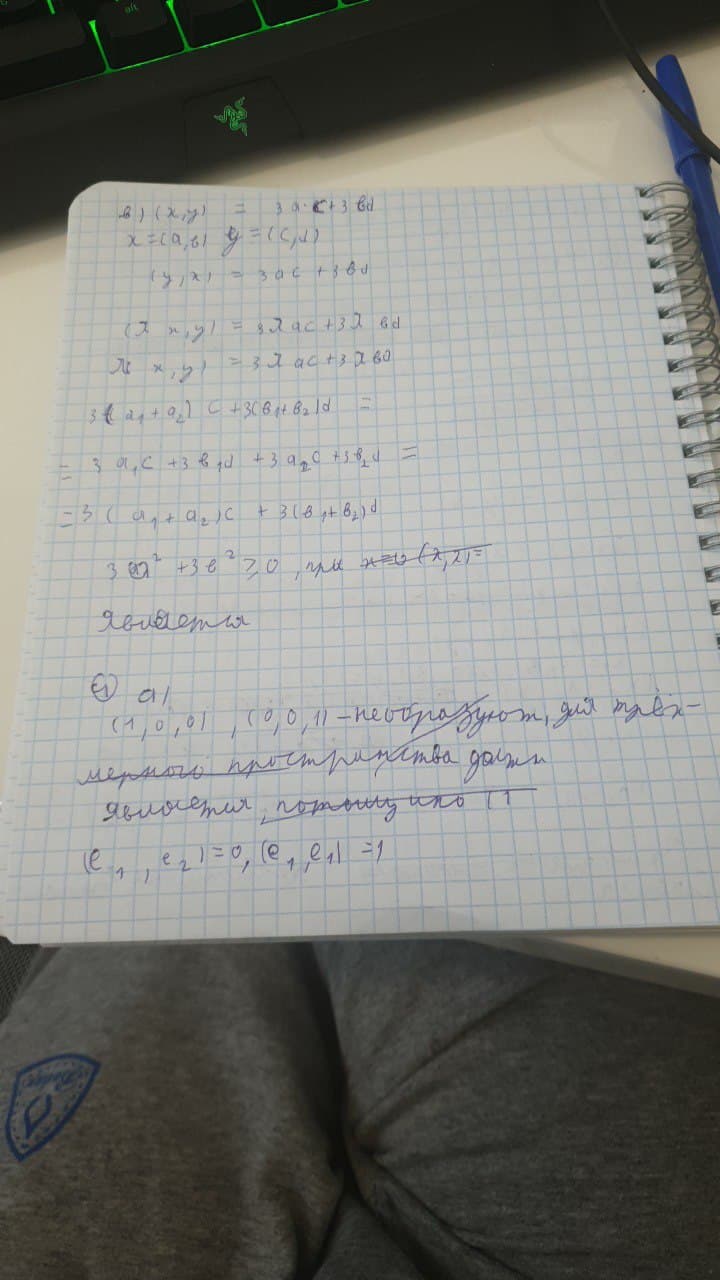 alt
в) (x,y) = 3a·c+3вd
x=(a,в) y=(c,d)
(y,x) = 3ac+3вd
(λ x,y) = 3λac+3λ вd
x,y) = 3λ ac+3λвd
3(a₁+a₂) c +3(в₁+в₂)d =
= 3a₁c +3в₁d +3a₂c +3в₂d =
=3(a₁+a₂)c +3(в₁+в₂)d
3a² +3в² ≥0, при x=0 (x,x)=
является
а)
(1,0,0), (0,0,1) - необразуют, для трёх-
мерного пространства
является, потому что (1
(e₁, e₂)=0, (e₁, e₁) =1